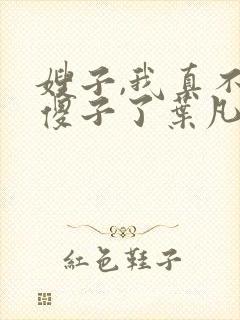 嫂子,我真不
傻子了葉凡
紅色鞋子